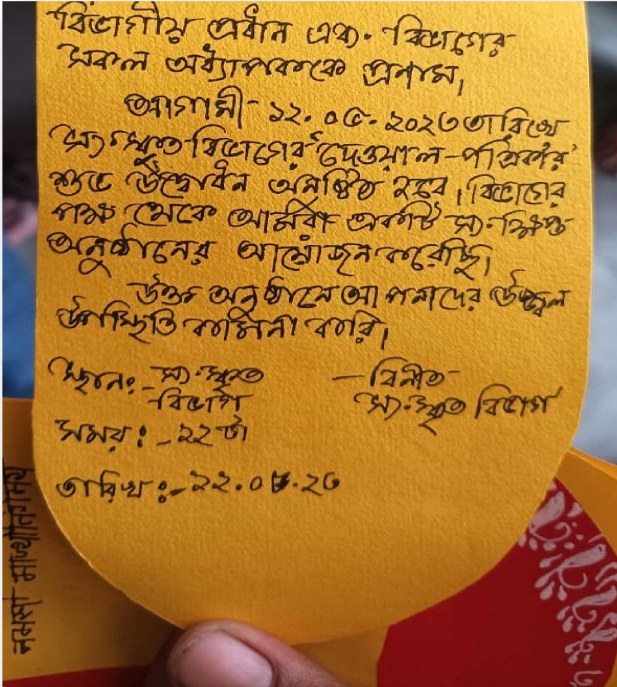 বিভাগীয় প্রধান এবং বিভাগের
সকল অধ্যাপককে প্রণাম,
আগামী- ১২.০৫.২০২৩ তারিখে
সংস্কৃত বিভাগের 'দেওয়াল-পত্রিকার'
শুভ উদ্বোধন অনুষ্ঠিত হবে। বিভাগের
পক্ষ থেকে আমরা একটি সংক্ষিপ্ত
অনুষ্ঠানের আয়োজন করেছি।
উক্ত অনুষ্ঠানে আপনাদের উজ্জ্বল
উপস্থিতি কামনা করি।
স্থান:- সংস্কৃত
বিভাগ
— বিনীত
সংস্কৃত বিভাগ
সময়:- ১২টা
তারিখ:- ১২.০৫.২৩